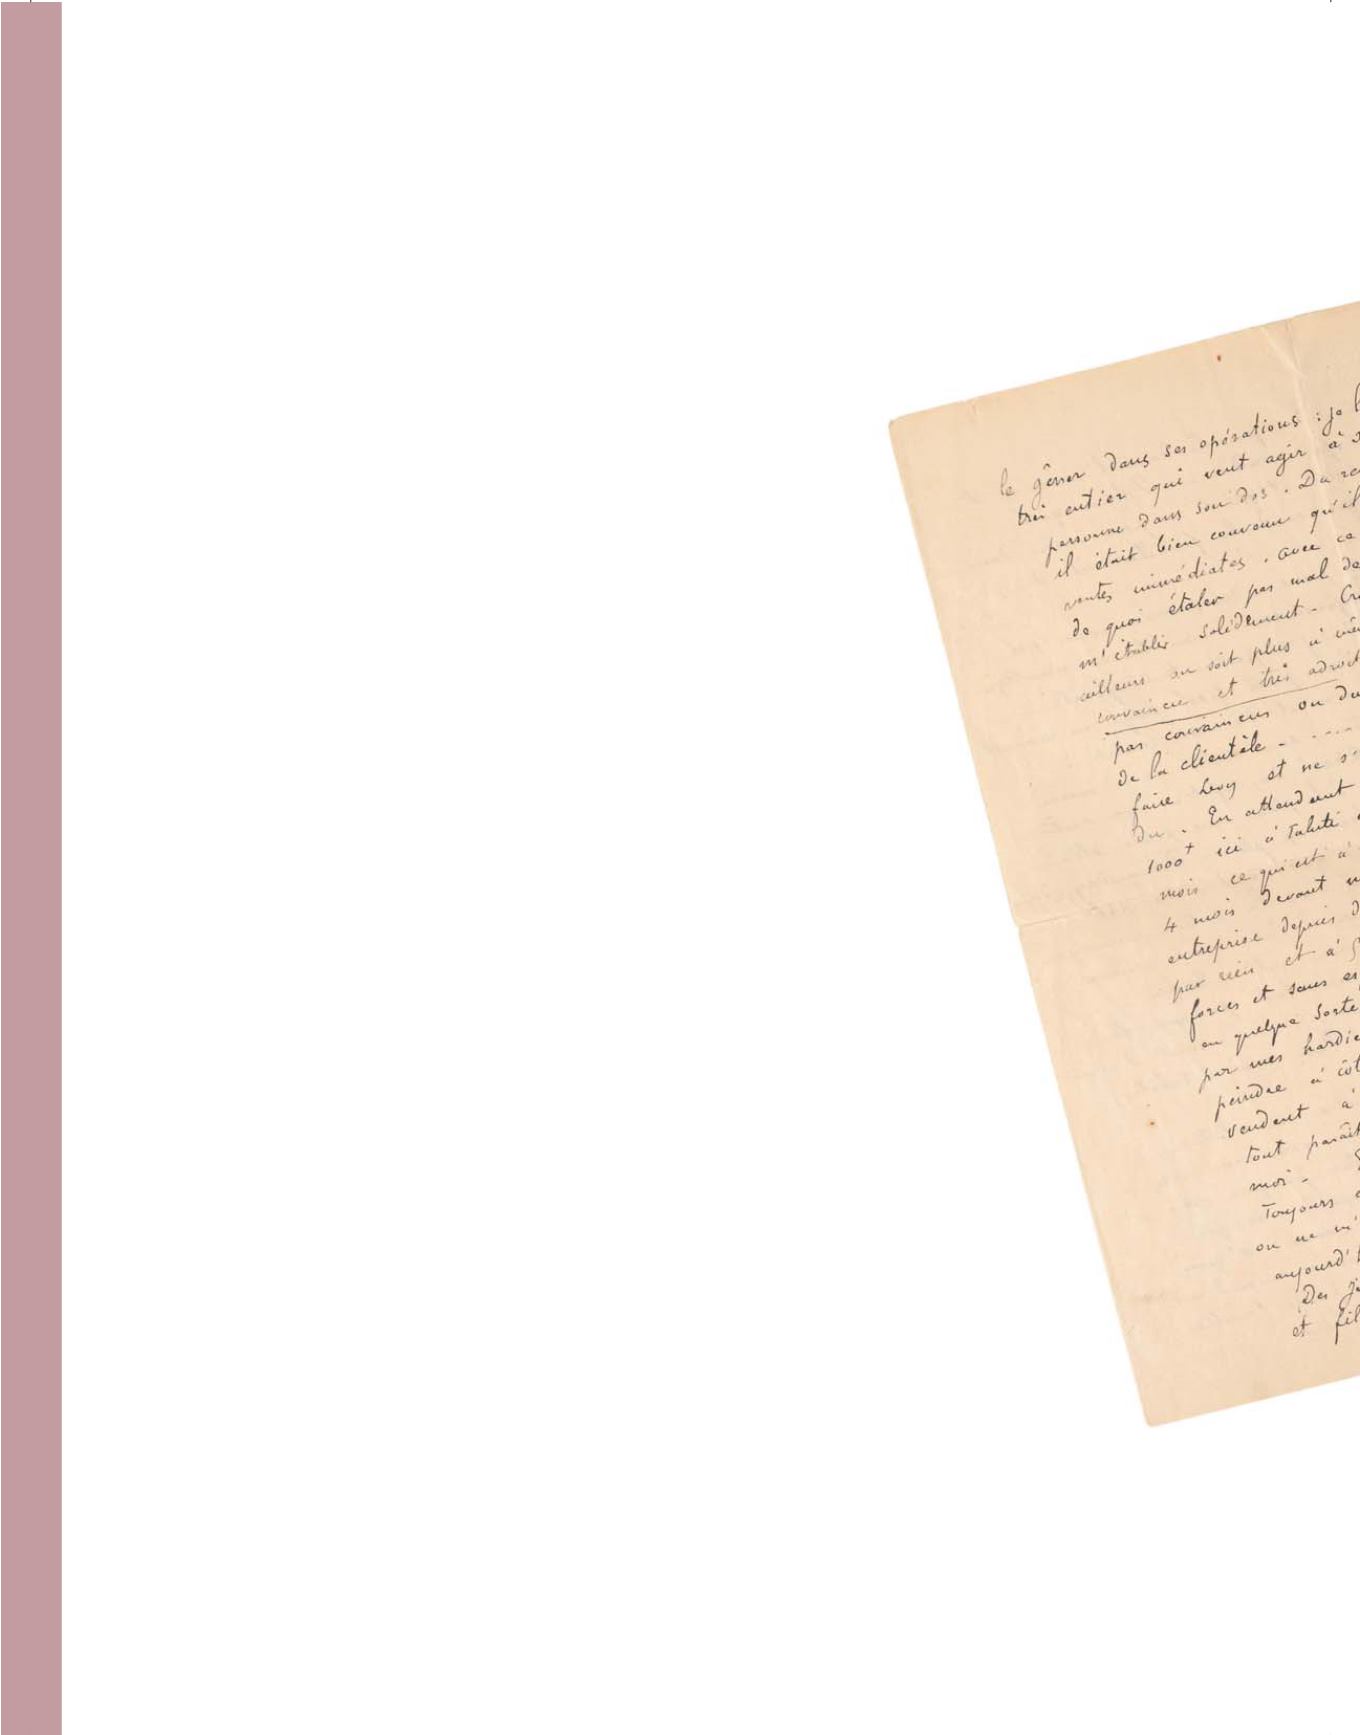 le gêner dans ses opérations : je l
très entier qui veut agir à s
personne dans son dos. Du re
il était bien convenu qu'il
ventes immédiates. avec ce
de quoi étaler pas mal de
m'établir solidement - Cr
ailleurs on soit plus à mê
convaincre et très adroit
pas convaincus ou du
de la clientèle - ----
faire Levy et ne s'
Du. En attendant
1000+ ici à Tahiti
mois ce qui est à
4 mois devant m
entreprise depuis d
par rien et à
forces et sans es
en quelque sorte
par mes hardie
peindre à côt
vendent à
tout paraît
moi -
Toujours
on ne m'
aujourd'h
Des je
et fil